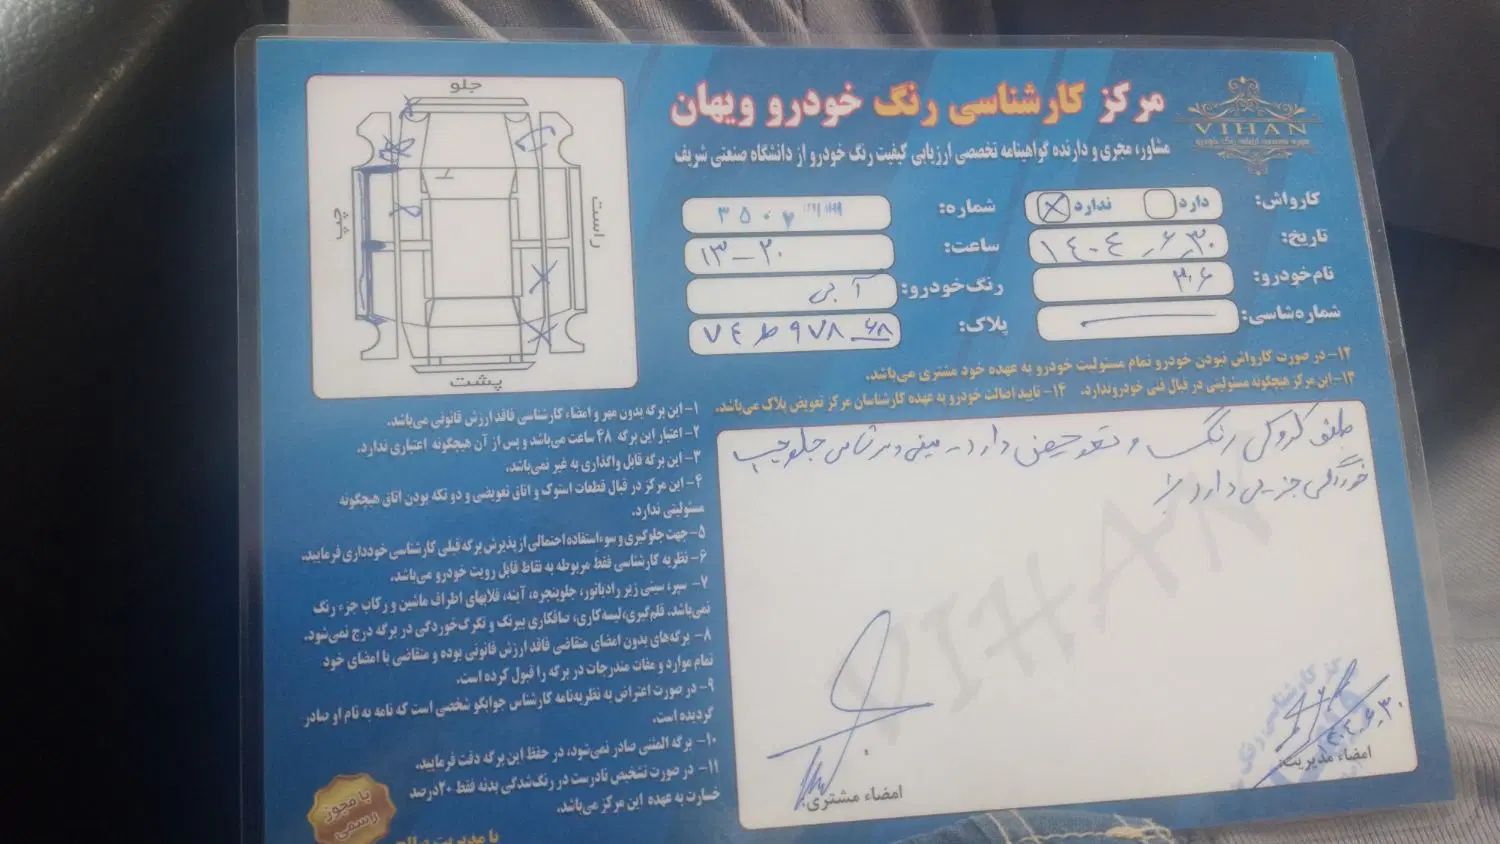 مرکز کارشناسی رنگ خودرو ویهان
VIHAN
مشاور، مجری و دارنده گواهینامه تخصصی ارزیابی کیفیت رنگ خودرو از دانشگاه صنعتی شریف
کارواش: دارد ندارد
شماره: ۳۵۰۷
تاریخ: ۱۴۰۴٫۶٫۳۰
ساعت: ۱۳-۲۰
نام‌خودرو: ۲۰۶
رنگ‌خودرو: آبی
شماره‌شاسی:
پلاک: ۷۴ ط ۹۷۸ ۶۸
جلو
راست
چپ
پشت
۱۲- در صورت کارواش نبودن خودرو تمام مسئولیت خودرو به عهده خود مشتری می‌باشد.
۱۳- این مرکز هیچگونه مسئولیتی در قبال فنی خودروندارد. ۱۴- تایید اصالت خودرو به عهده کارشناسان مرکز تعویض پلاک می‌باشد.
طبق کروکی رنگ و تعویض دارد - سینی و سرشاسی جلو چپ
خوردگی جزیی دارد
۱- این برگه بدون مهر و امضاء کارشناسی فاقد ارزش قانونی می‌باشد.
۲- اعتبار این برگه ۴۸ ساعت می‌باشد و پس از آن هیچگونه اعتباری ندارد.
۳- این برگه قابل واگذاری به غیر نمی‌باشد.
۴- این مرکز در قبال قطعات استوک و اتاق تعویضی و دو تکه بودن اتاق هیچگونه
مسئولیتی ندارد.
۵- جهت جلوگیری و سوءاستفاده احتمالی از پذیرش برگه قبلی کارشناسی خودداری فرمایید.
۶- نظریه کارشناسی فقط مربوطه به نقاط قابل رویت خودرو می‌باشد.
۷- سپر، سینی زیر رادیاتور، جلوپنجره، آینه، قلابهای اطراف ماشین و رکاب جزء رنگ
نمی‌باشد. قلم‌گیری، لیسه‌کاری، صافکاری بیرنگ و تگرگ‌خوردگی در برگه درج نمی‌شود.
۸- برگه‌های بدون امضای متقاضی فاقد ارزش قانونی بوده و متقاضی با امضای خود
تمام موارد و مفات مندرجات در برگه را قبول کرده است.
۹- در صورت اعتراض به نظریه‌نامه کارشناس جوابگو شخصی است که نامه به نام او صادر
گردیده است.
۱۰- برگه المثنی صادر نمی‌شود، در حفظ این برگه دقت فرمایید.
۱۱- در صورت تشخیص نادرست در رنگ‌شدگی بدنه فقط ۲۰درصد
خسارت به عهده این مرکز می‌باشد.
امضاء مشتری:
امضاء مدیریت:
۱۴۰۴٫۶٫۳۰
با مجوز
رسمی
با مدیریت